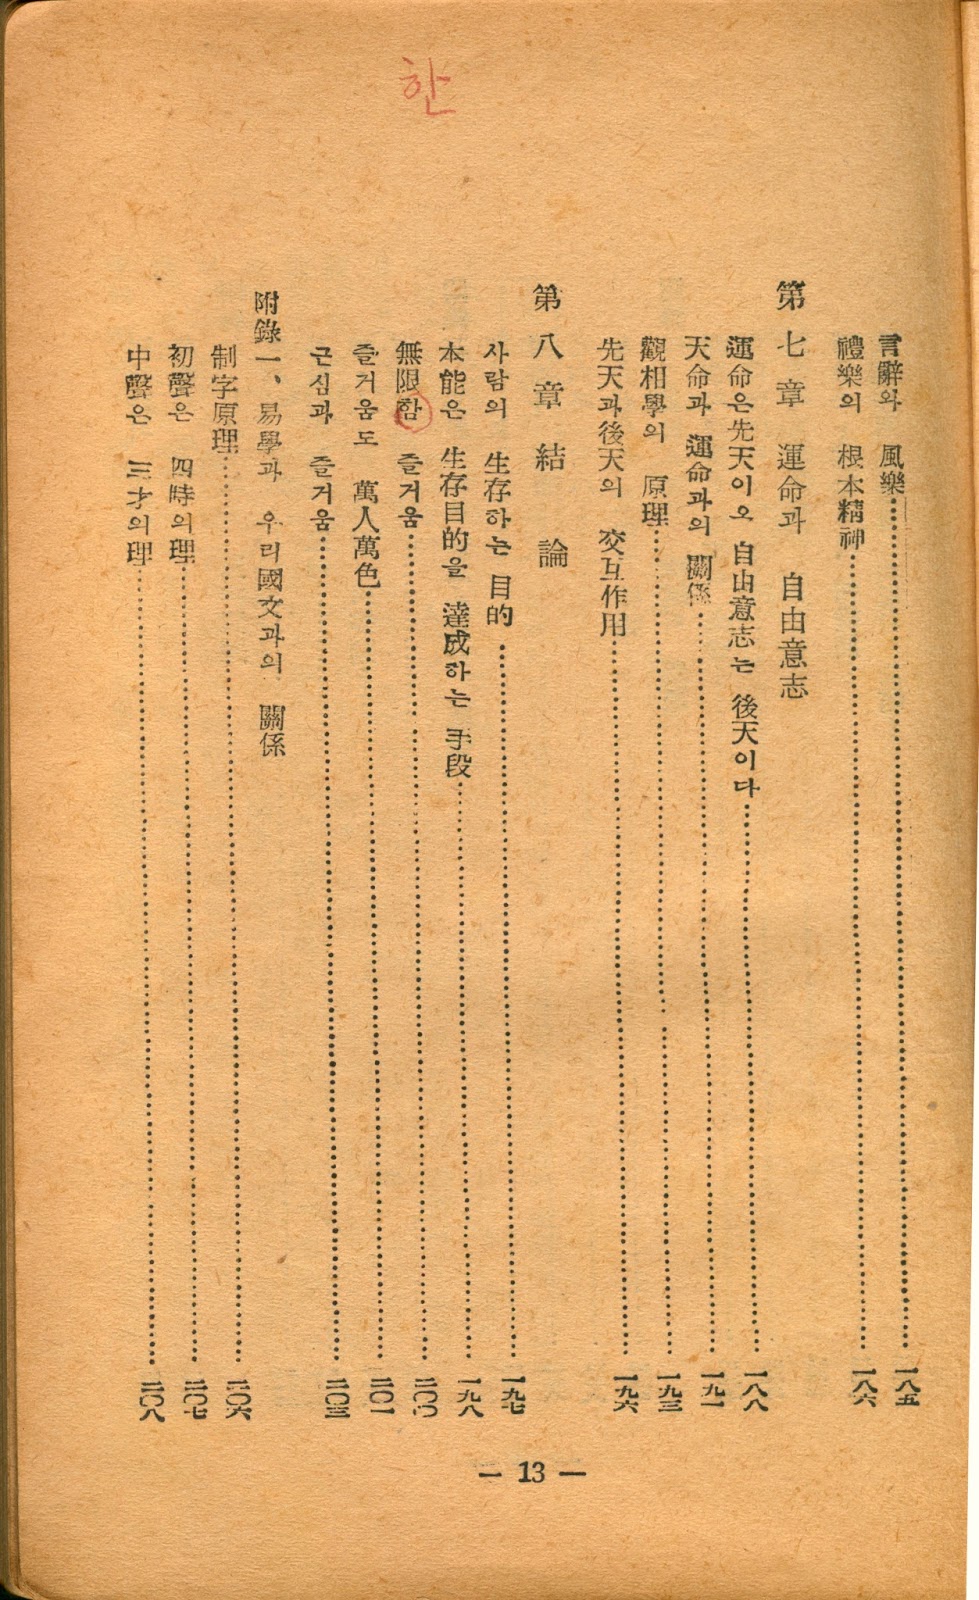 한
言辭와 風樂……一八五
禮樂의 根本精神……一八六
第七章 運命과 自由意志
運命은先天이오 自由意志는 後天이다……一八八
天命과 運命과의 關係……一九一
觀相學의 原理……一九三
先天과後天의 交互作用……一九六
第八章 結論
사람의 生存하는 目的……一九七
本能은 生存目的을 達成하는 手段……一九八
無限함 즐거움……二〇〇
즐거움도 萬人萬色……二〇一
근심과 즐거움……二〇三
附錄一、易學과 우리國文과의 關係
制字原理……二〇六
初聲은 四時의理……二〇七
中聲은 三才의理……二〇八
— 13 —